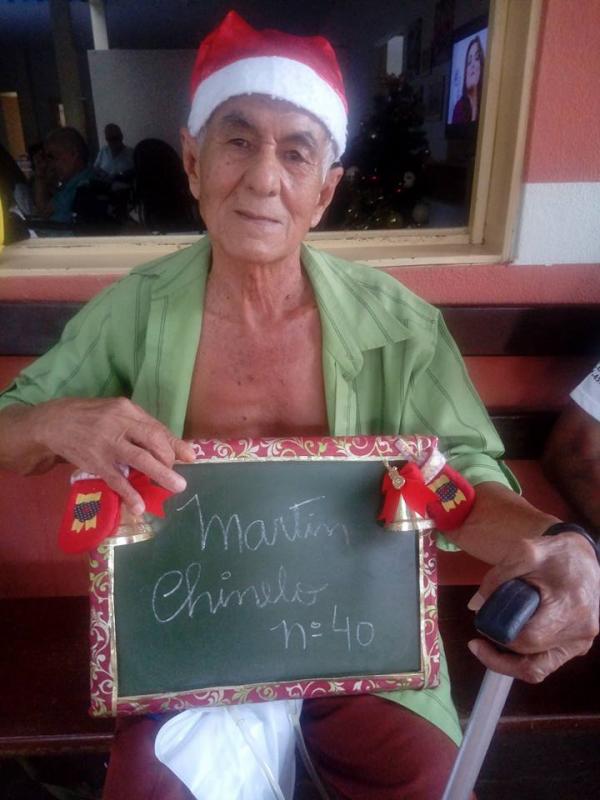 Martin
Chinelo
nº 40